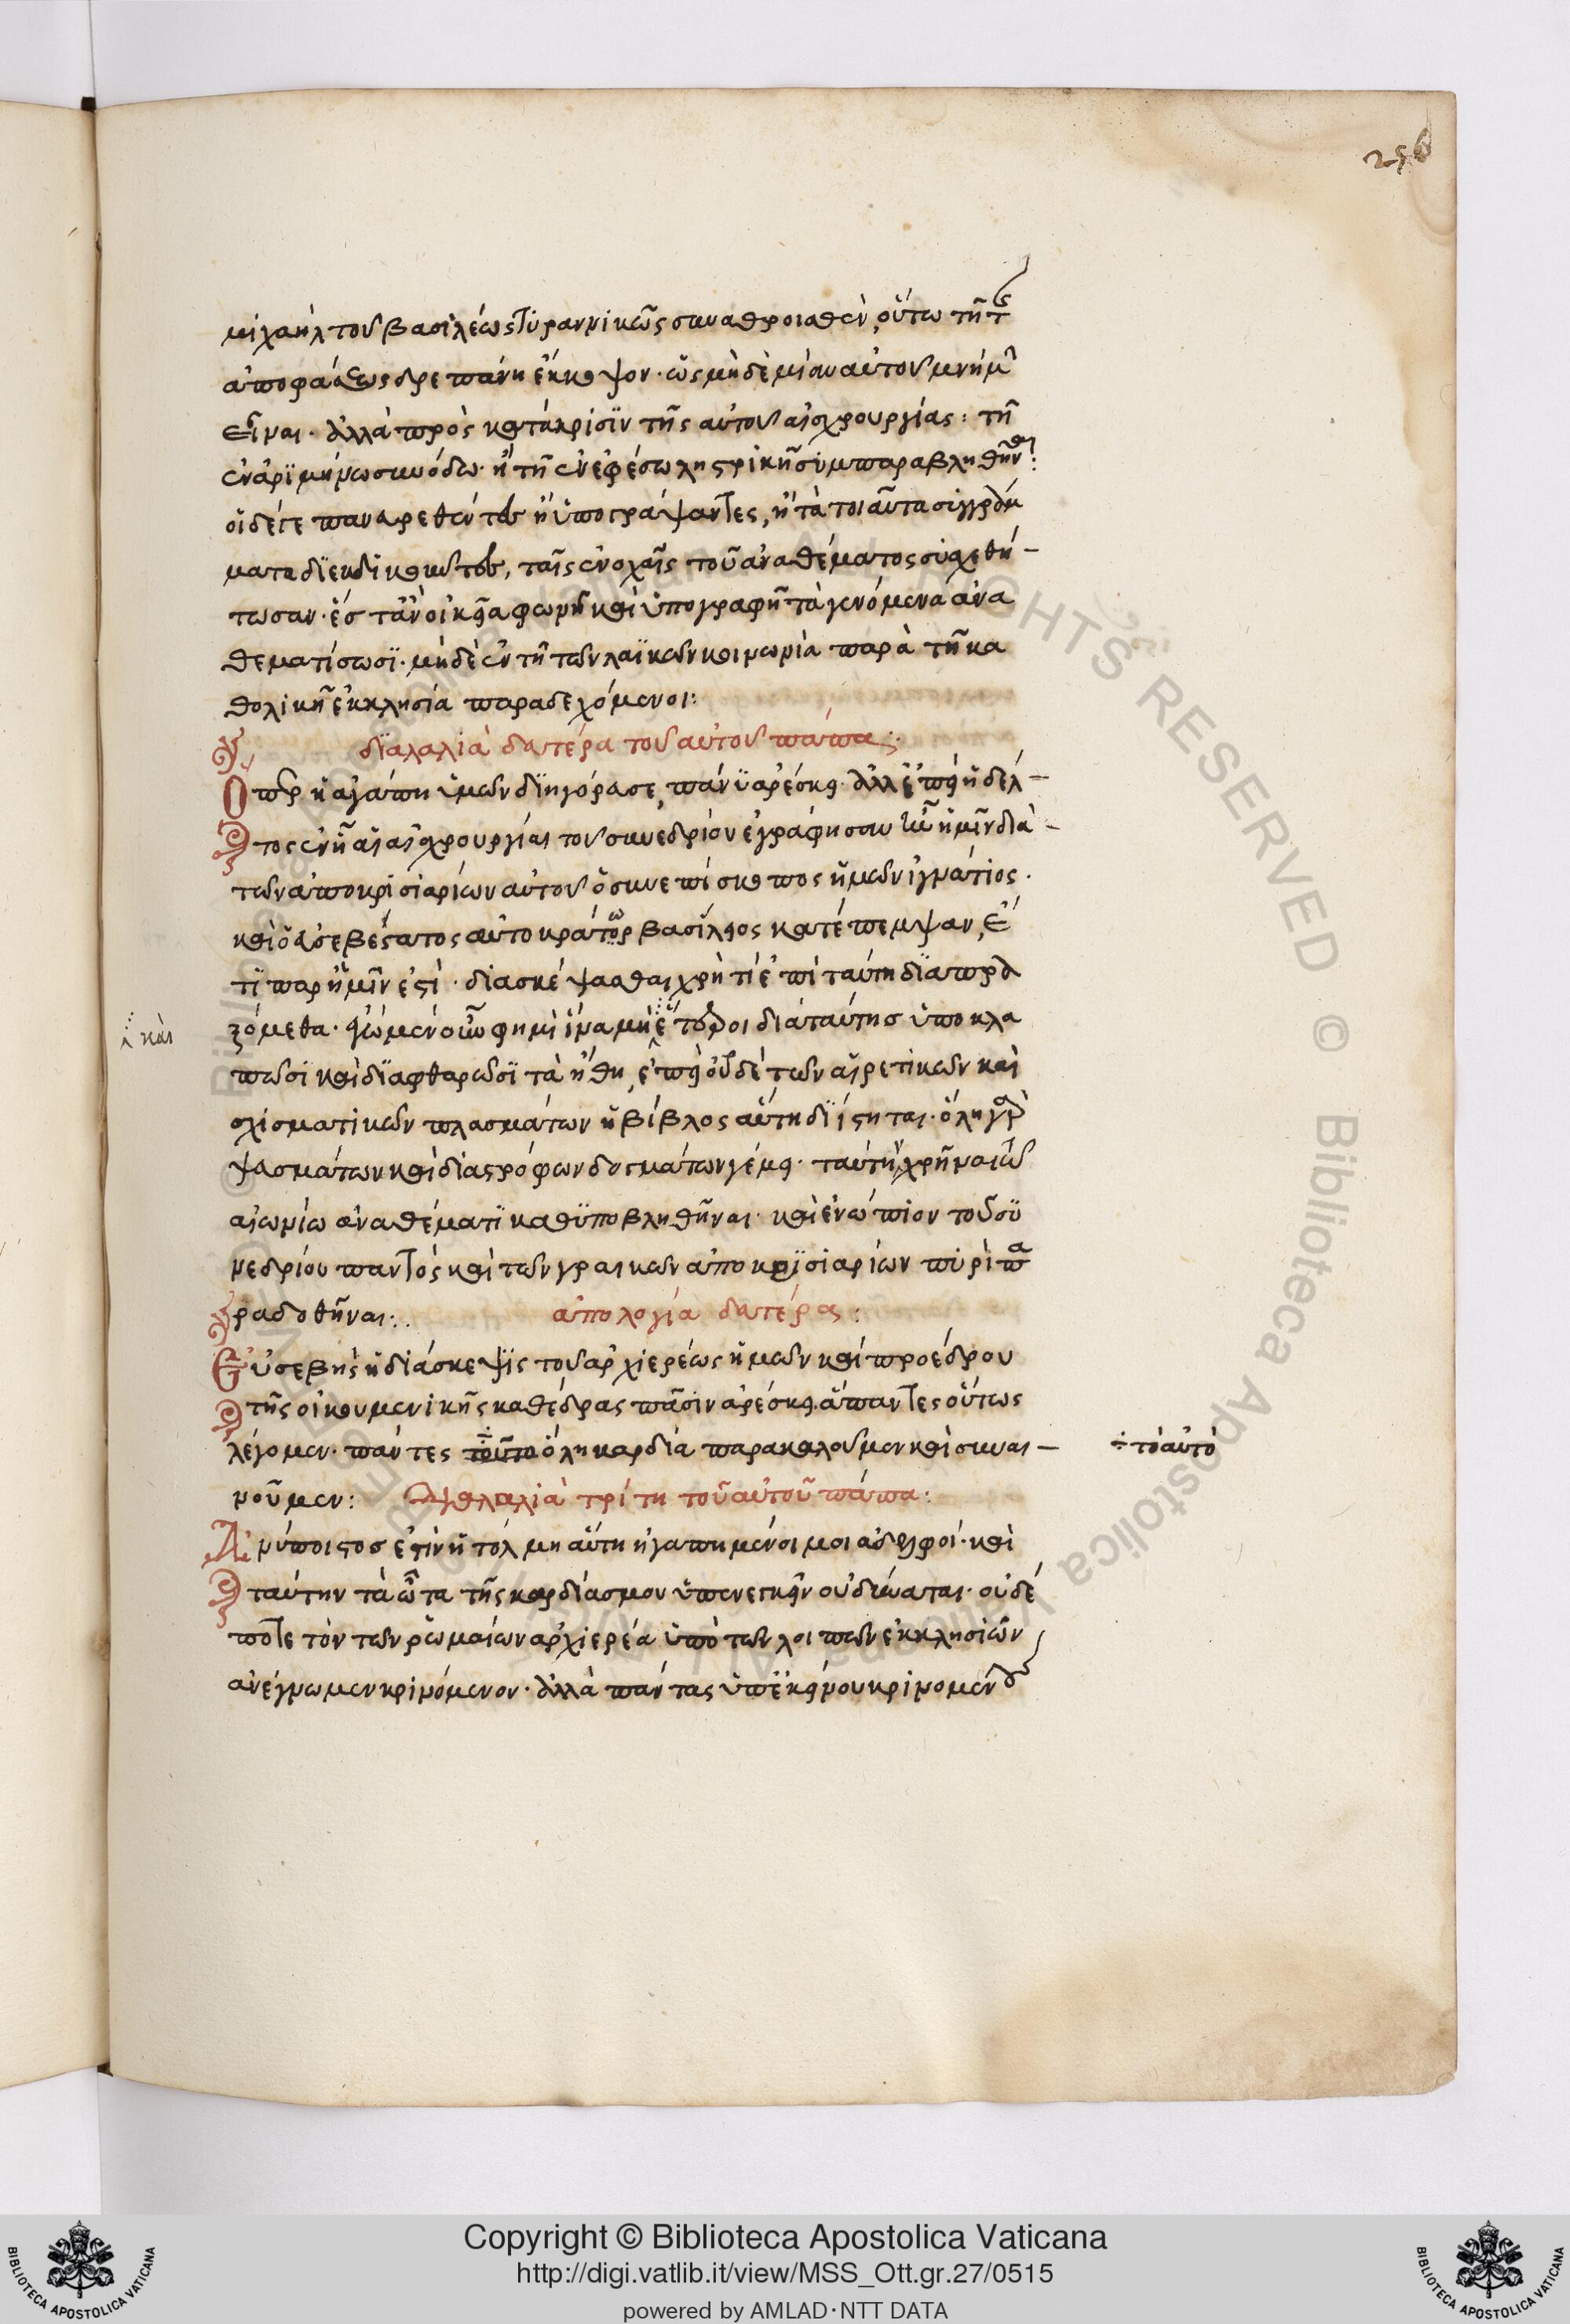 256
μιχαὴλ τοῦ βασιλέως τυραννικῶς συναθροισθὲν, οὕτω τῆ τ
ἀποφάσεως δρεπάνη ἔκκοψον· ὡς μηδὲ μίαν αὐτοῦ μνήμ
εἶναι· ἀλλὰ πρὸς κατάκρισιν τῆς αὐτοῦ αἰσχρουργίας: τῆ
ἐν ἀριμήνω συνόδω· ἢ τῆ ἐν ἐφέσω ληστρικῆ συμπαραβληθῆναι:
οἱ δέ γε παναρεθέντες ἢ ὑπογράψαντες, ἢ τὰ τοιαῦτα συγγράμ
ματα διεκδικοῦντες, ταῖς ἐνοχαῖς τοῦ ἀναθέματος συσχεθή-
τωσαν· ἔς τ' ἂν οἰκεία φωνῆ καὶ ὑπογραφῆ τὰ γενόμενα ἀνα
θεματίσωσι· μηδὲ ἐν τῆ τῶν λαϊκῶν κοινωνία παρὰ τῆ κα
θολικῆ ἐκκλησία παραδεχόμενοι:
διαλαλιὰ δευτέρα τοῦ αὐτοῦ πάπα:
Ὅπερ ἡ ἀγάπη ὑμῶν διηγόρασε, πάνυ ἀρέσκει· ἀλλ' ἐπεὶ ἡ δέλ-
τος ἐν ἧ αἱ αἰσχρουργίαι τοῦ συνεδρίου ἐγράφησαν ἣν ἡμῖν διὰ-
τῶν ἀποκρισιαρίων αὐτοῦ ὁ συνεπίσκοπος ἡμῶν ἰγνάτιος·
καὶ ὁ εὐσεβέστατος αὐτοκράτωρ βασίλειος κατέπεμψαν, ἔ
τι παρ' ἡμῖν ἐστὶ· διασκέψασθαι χρὴ τί ἐπὶ ταύτη διαπραξ
ζόμεθα· φημὶ ἵνα μὴ ἕτεροι διὰ ταύτης ὑποκλα
πῶσι καὶ διαφθαρῶσι τὰ ἤθη, ἐπεὶ οὐδὲ τῶν αἱρετικῶν καὶ
σχισματικῶν πλασμάτων ἡ βίβλος αὕτη διΐσταται· ὅλη γὰρ
ψευσμάτων καὶ διαστρόφων δογμάτων γέμει· ταύτην χρῆναι
αἰωνίω ἀναθέματι καθυποβληθῆναι· καὶ ἐνώπιον τοῦ συ
νεδρίου παντὸς καὶ τῶν γραικῶν ἀποκρισιαρίων πυρὶ πα
ραδοθῆναι:. ἀπολογία δευτέρας:
Εὐσεβὴς ἡ διάσκεψις τοῦ ἀρχιερέως ἡμῶν καὶ προέδρου
τῆς οἰκουμενικῆς καθέδρας πᾶσιν ἀρέσκει. ἅπαντες οὕτως
λέγομεν· πάντες τοῦτο ὅλη καρδία παρακαλοῦμεν καὶ συναι-
νοῦμεν: Διαλαλιὰ τρίτη τοῦ αὐτοῦ πάπα:
Ἀνύποιστος ἐστὶν ἡ τόλμη αὕτη ἠγαπημένοι μοι ἀδελφοί· καὶ
ταύτην τὰ ὦτα τῆς καρδίας μου ὑπενεγκεῖν οὐ δύναται· οὐδέ
ποτε τὸν τῶν ῥωμαίων ἀρχιερέα ὑπὸ τῶν λοιπῶν ἐκκλησιῶν
ἀνέγνωμεν κρινόμενον· ἀλλὰ πάντας ὑπ' ἐκείνου κρινομένους
καὶ
τὸ αὐτὸ
Copyright © Biblioteca Apostolica Vaticana
http://digi.vatlib.it/view/MSS_Ott.gr.27/0515
powered by AMLAD·NTT DATA